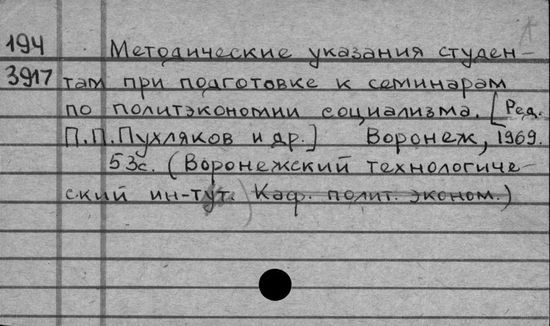 194 Методические указания студен-
3917 там при подготовке к семинарам
по политэкономии социализма. [Ред.
П.П.Пухляков и др.] Воронеж, 1969.
53с. (Воронежский технологиче-
ский ин-тут. Каф. полит. эконом.)